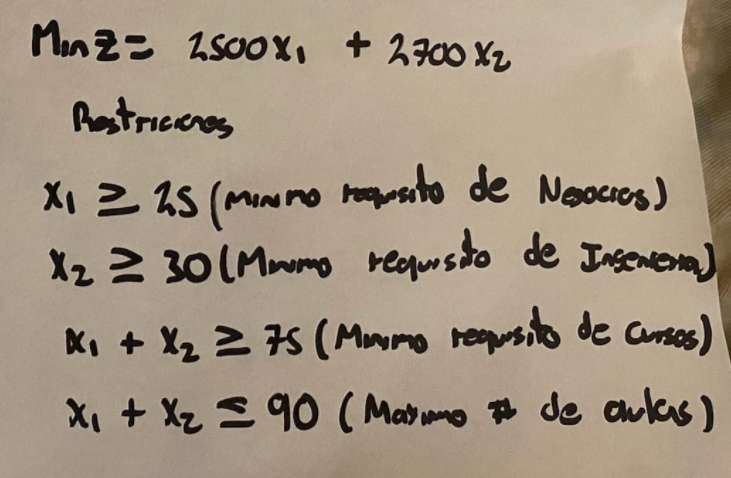 Min Z = 2500 x₁ + 2700 x₂
Restricciones
x₁ ≥ 25 (minimo requisito de Negocios)
x₂ ≥ 30 (Minimo requisito de Ingenieria)
x₁ + x₂ ≥ 75 (Minimo requisito de cursos)
x₁ + x₂ ≤ 90 (Maximo # de aulas)